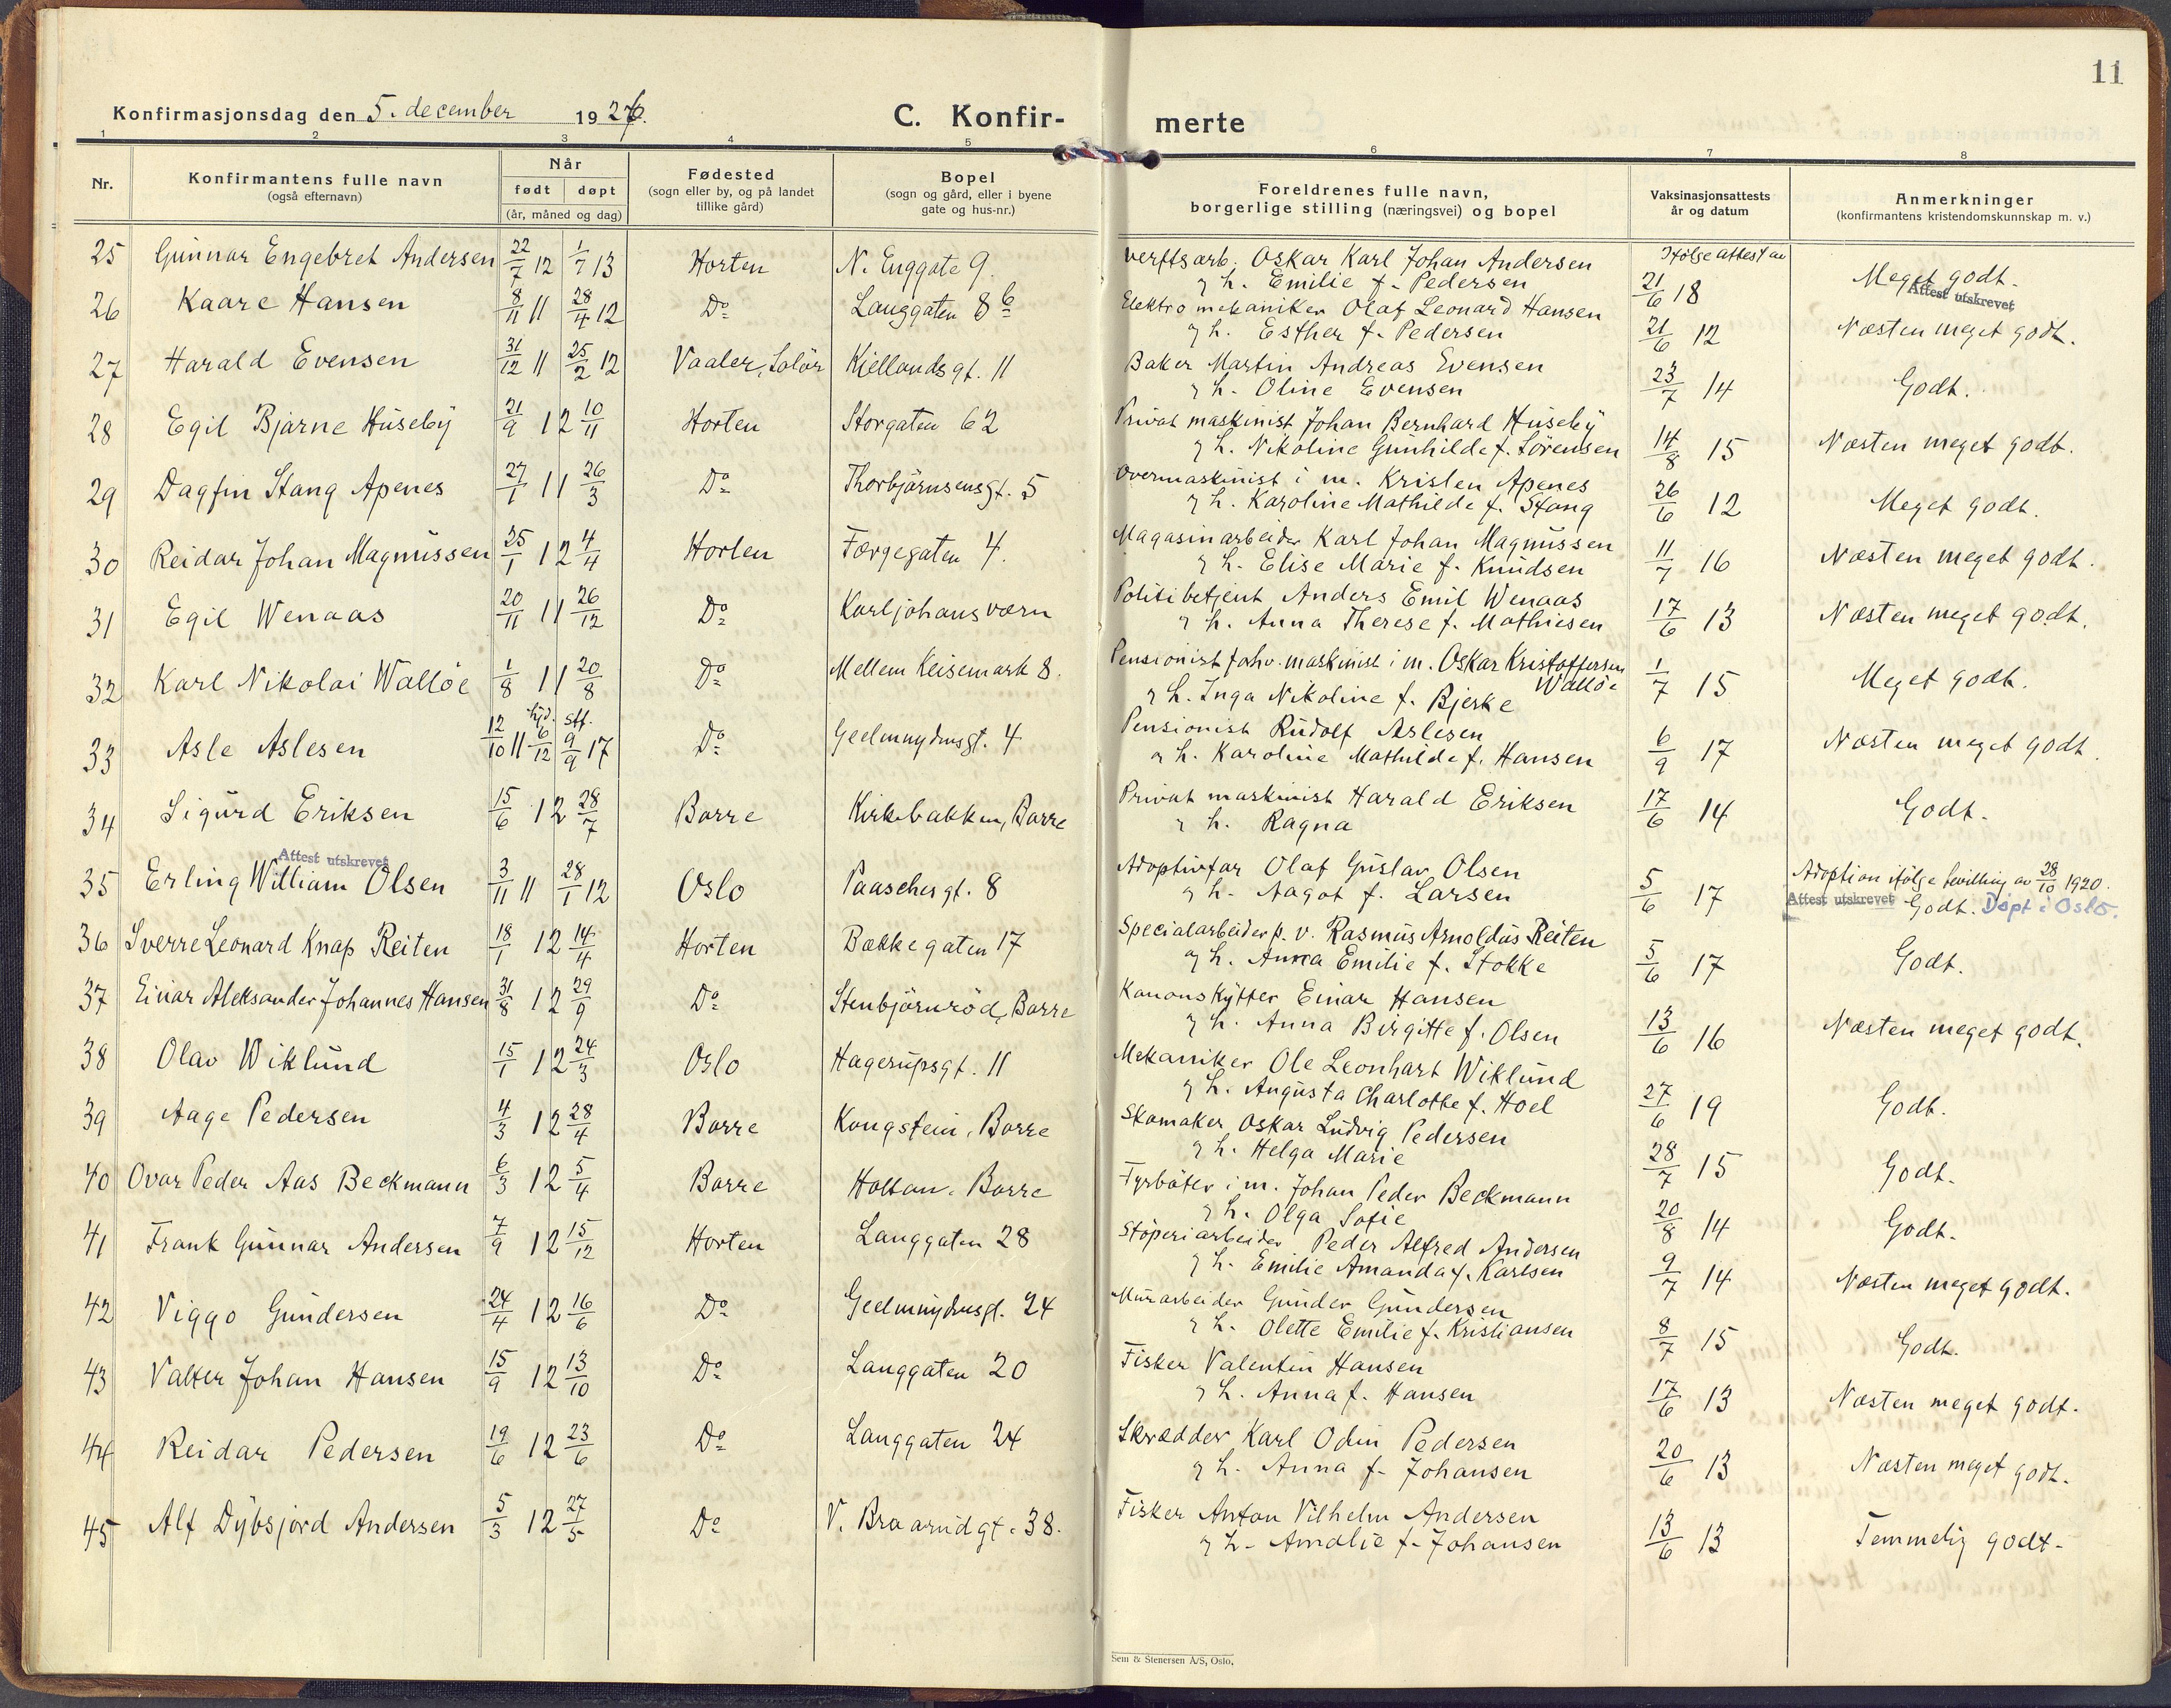 11
Konfirmasjonsdag den 5. december 1926.
C. Konfir- merte
1 2 3 4 5 6 7 8
Nr.
Konfirmantens fulle navn
(også efternavn)
Når
født døpt
(år, måned og dag)
Fødested
(sogn eller by, og på landet
tillike gård)
Bopel
(sogn og gård, eller i byene
gate og hus-nr.)
Foreldrenes fulle navn,
borgerlige stilling (næringsvei) og bopel
Vaksinasjonsattests
år og datum
Anmerkninger
(konfirmantens kristendomskunnskap m. v.)
25 Gunnar Engebret Andersen 22/7 12 1/7 13 Horten N. Enggate 9. Verftsarb. Oskar Karl Johan Andersen Ifølge attest av
og h. Emilie f. Pedersen 21/6 18 Meget godt.
Attest utskrevet
26 Kaare Hansen 8/11 11 28/4 12 Do Langgaten 8 b Elektromekaniker Olaf Leonard Hansen
og h. Esther f. Pedersen 21/6 12 Næsten meget godt.
27 Harald Evensen 31/12 11 25/2 12 Vaaler, Solør Kiellandsgt. 11 Baker Martin Andreas Evensen
og h. Oline Evensen 23/7 14 Godt.
28 Egil Bjarne Huseby 21/9 12 10/11 Horten Storgaten 62 Privat maskinist Johan Bernhard Huseby
og h. Nikoline Gunhilde f. Sørensen 14/8 15 Næsten meget godt.
29 Dagfin Stang Apenes 27/1 11 26/3 Do Thorbjørnsensgt. 5 Overmaskinist i m. Kristen Apenes
og h. Karoline Mathilde f. Stang 26/6 12 Meget godt.
30 Reidar Johan Magnussen 25/1 12 4/4 Horten Færgegaten 4. Magasinarbeider Karl Johan Magnussen
og h. Elise Marie f. Knudsen 11/7 16 Næsten meget godt.
31 Egil Wenaas 20/11 11 26/12 Do Karljohansværn Politibetjent Anders Emil Wenaas
og h. Anna Therese f. Mathiesen 17/6 13 Næsten meget godt.
32 Karl Nikolai Walløe 1/8 11 20/8 Do Mellem Keisemark 8. Pensionist forhv. maskinist i m. Oskar Kristoffersen
Walløe
og h. Inga Nikoline f. Bjerke 1/7 15 Meget godt.
33 Asle Aslesen 12/10 11 hjd. 6/12 stf. 9/9 17 Do Geelmuydensgt. 4 Pensionist Rudolf Aslesen
og h. Karoline Mathilde f. Hansen 6/9 17 Næsten meget godt.
34 Sigurd Eriksen 15/6 12 28/7 Borre Kirkebakken, Borre Privat maskinist Harald Eriksen
og h. Ragna 17/6 14 Godt.
Attest utskrevet
35 Erling William Olsen 3/11 11 28/1 12 Oslo Paaschesgt. 8 Adoptivfar Olaf Gustav Olsen
og h. Aagot f. Larsen 5/6 17 Adoption ifølge bevilling av 28/10 1920.
Attest utskrevet Godt. Døpt i Oslo.
36 Sverre Leonard Knap Reiten 18/1 12 14/4 Horten Bækkegaten 17 Specialarbeider p. v. Rasmus Arnoldus Reiten
og h. Anna Emilie f. Stokke 5/6 17 Godt.
37 Einar Aleksander Johannes Hansen 31/8 12 29/9 Do Stenbjørnrød, Borre Kanonskytter Einar Hansen
og h. Anna Birgitte f. Olsen 13/6 16 Næsten meget godt.
38 Olav Wiklund 15/1 12 24/3 Oslo Hagerupsgt. 11 Mekaniker Ole Leonhart Wiklund
og h. Augusta Charlotte f. Hoel 27/6 19 Godt.
39 Aage Pedersen 4/3 12 28/4 Borre Kongstein, Borre Skomaker Oskar Ludvig Pedersen
og h. Helga Marie 28/7 15 Godt.
40 Ovar Peder Aas Beckmann 6/3 12 5/4 Borre Holtan, Borre Fyrbøter i m. Johan Peder Beckmann
og h. Olga Sofie 20/8 14 Godt.
41 Frank Gunnar Andersen 7/9 12 15/12 Horten Langgaten 28 Støperiarbeider Peder Alfred Andersen
og h. Emilie Amanda f. Karlsen 9/7 14 Næsten meget godt.
42 Viggo Gundersen 24/4 12 16/6 Do Geelmuydensgt. 24 Murarbeider Gunder Gundersen
og h. Olette Emilie f. Kristiansen 8/7 15 Godt.
43 Valter Johan Hansen 15/9 12 13/10 Do Langgaten 20 Fisker Valentin Hansen
og h. Anna f. Hansen 17/6 13 Næsten meget godt.
44 Reidar Pedersen 19/6 12 23/6 Do Langgaten 24 Skrædder Karl Odin Pedersen
og h. Anna f. Johansen 20/6 13 Næsten meget godt.
45 Alf Dybsjord Andersen 5/3 12 27/5 Do V. Braarudgt. 38. Fisker Anton Vilhelm Andersen
og h. Amalie f. Johansen 13/6 13 Temmelig godt.
Sem & Stenersen A/S, Oslo.